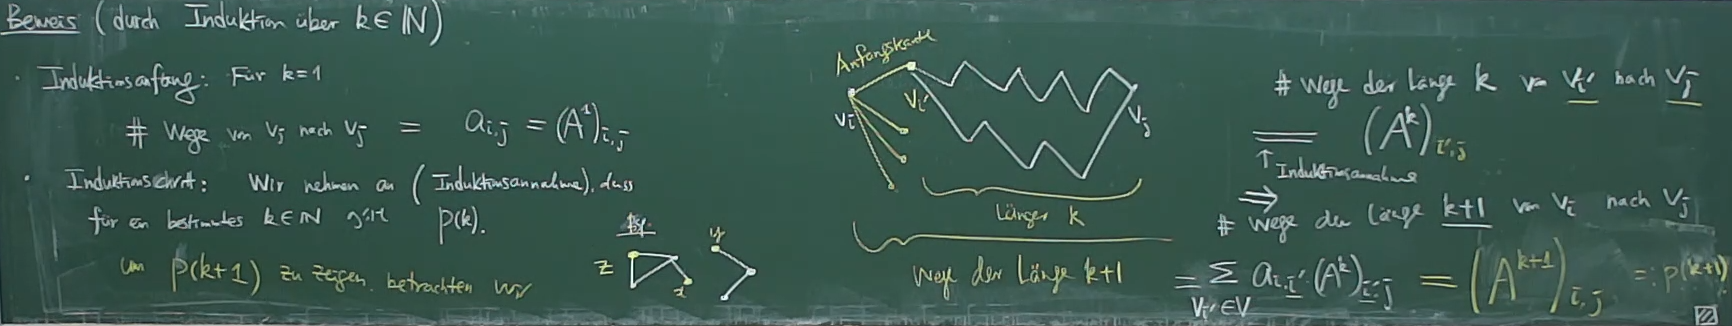 Beweis (durch Induktion über k ∈ ℕ)
· Induktionsanfang: Für k=1
# Wege von Vj nach Vj = a_{i,j} = (A^1)_{i,j}
· Induktionsschritt: Wir nehmen an (Induktionsannahme), dass
für ein bestimmtes k ∈ ℕ gilt P(k).
um P(k+1) zu zeigen, betrachten wir
Bsp.
z
x
y
Anfangskante
Vi
Vi'
Vj
Länge k
Wege der Länge k+1
# Wege der Länge k von Vi' nach Vj
= (A^k)_{i',j}
↑ Induktionsannahme
⇒
# Wege der Länge k+1 von Vi nach Vj
= Σ_{Vi' ∈ V} a_{i,i'} (A^k)_{i',j} = (A^{k+1})_{i,j} =: P(k+1)